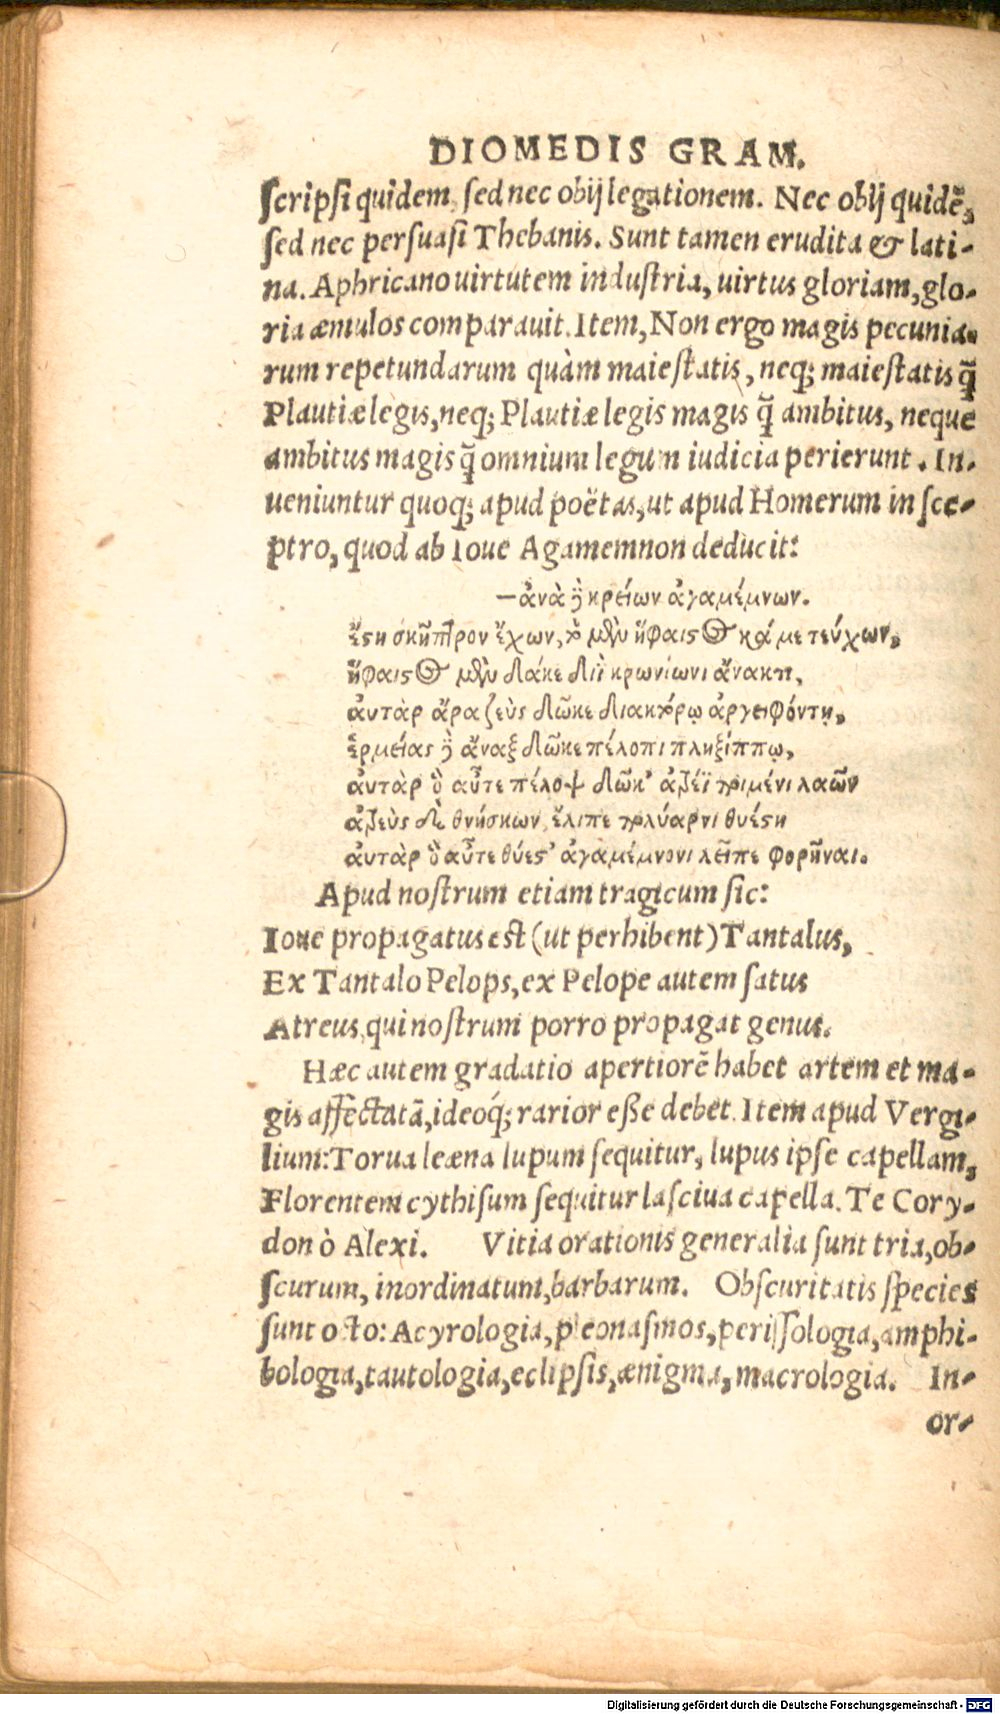 DIOMEDIS GRAM.
scripsi quidem, sed nec obij legationem. Nec obij quidē,
sed nec persuasi Thebanis. Sunt tamen erudita & lati-
na. Aphricano uirtutem industria, uirtus gloriam, glo-
ria æmulos comparauit. Item, Non ergo magis pecunia-
rum repetundarum quàm maiestatis, neq; maiestatis q̃
Plautiæ legis, neq; Plautiæ legis magis q̃ ambitus, neque
ambitus magis q̃ omnium legum iudicia perierunt. In-
ueniuntur quoq; apud poëtas, ut apud Homerum in sce-
ptro, quod ab Ioue Agamemnon deducit:
—ἀνὰ ϳ κρείων ἀγαμέμνων.
ἔστη σκῆπτρον ἔχων, τὸ μὲν ἥφαιστος κάμε τεύχων,
ἥφαιστος μὲν δῶκε διῒ κρωνίωνι ἄνακτι,
αὐτὰρ ἄρα ζεὺς δῶκε διακτόρῳ ἀργειφόντῃ,
ἑρμείας δὲ ἄναξ δῶκε πέλοπι πληξίππῳ,
αὐτὰρ ὃ αὖτε πέλοψ δῶκ' ἀτρέϊ ποιμένι λαῶν
ἀτρεὺς δὲ θνήσκων, ἔλιπε πολύαρνι θυέστῃ
αὐτὰρ ὃ αὖτε θύεστ' ἀγαμέμνονι λεῖπε φορῆναι.
Apud nostrum etiam tragicum sic:
Ioue propagatus est (ut perhibent) Tantalus,
Ex Tantalo Pelops, ex Pelope autem satus
Atreus, qui nostrum porro propagat genus.
Hæc autem gradatio apertiorē habet artem et ma-
gis affectatā, ideoq́; rarior esse debet. Item apud Vergi-
lium: Torua leæna lupum sequitur, lupus ipse capellam,
Florentem cythisum sequitur lasciua capella. Te Cory-
don ò Alexi. Vitia orationis generalia sunt tria, ob-
scurum, inordinatum, barbarum. Obscuritatis species
sunt octo: Acyrologia, pleonasmos, perissologia, amphi-
bologia, tautologia, eclipsis, ænigma, macrologia. In-
or-
Digitalisierung gefördert durch die Deutsche Forschungsgemeinschaft - DFG